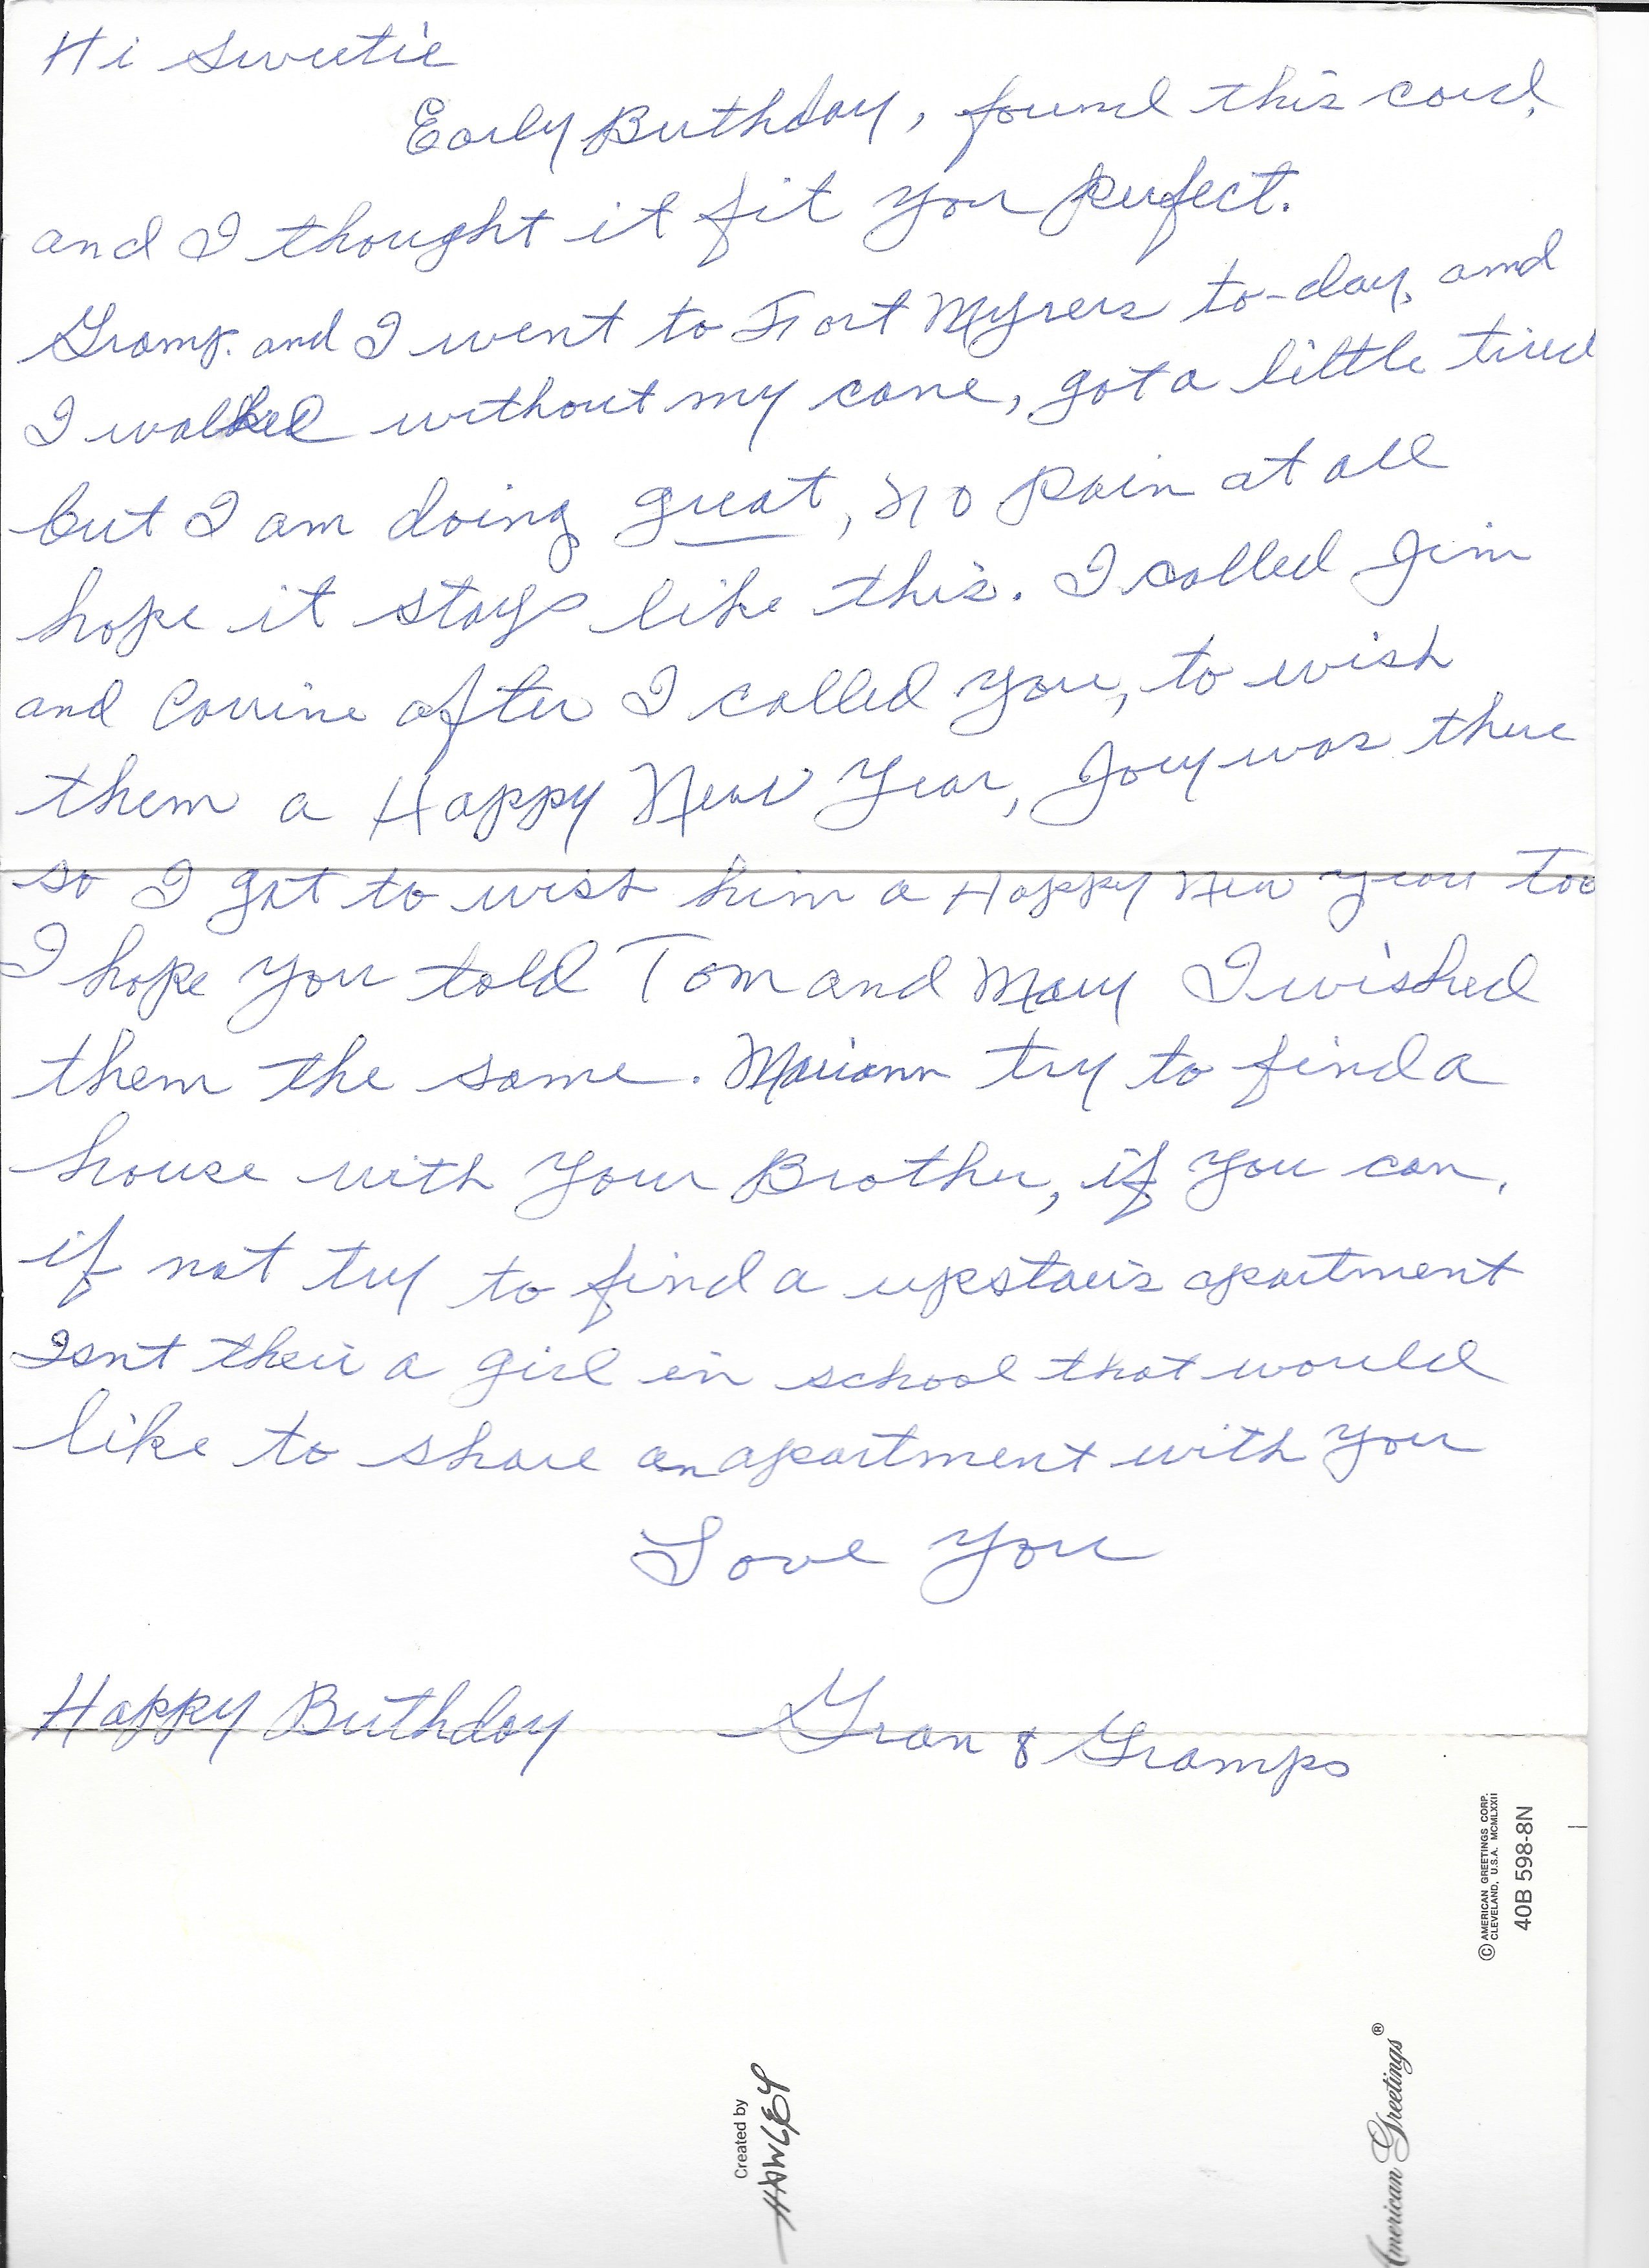 Hi Sweetie
Early Birthday, found this card,
and I thought it fit you perfect.
Gramp. and I went to Fort Myrers to-day, and
I walked without my cane, got a little tired
but I am doing great, no pain at all
hope it stays like this. I called Jim
and Corrine after I called you, to wish
them a Happy New Year, Joey was there
so I got to wish him a Happy New Year Too
I hope you told Tom and Mary I wished
them the same. Mariann try to find a
house with your Brother, if you can,
if not try to find a upstairs apartment
Isnt their a girl in school that would
like to share an apartment with you
Love you
Happy Birthday Gran & Gramps
© AMERICAN GREETINGS CORP.
CLEVELAND, U.S.A. MCMLXXII
40B 598-8N
American Greetings®
Created by
HAWLEY